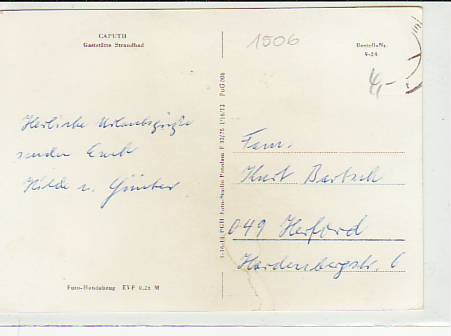 CAPUTH
Gaststätte Strandbad
1506
Bestell-Nr.
4,-
Herzliche Urlaubsgrüße
senden Euch
Hilde u. Günter
Fam.
Kurt Bartsch
049 Herford
Hardenbergstr. 6
Foto-Handabzug EVP 0,25 M